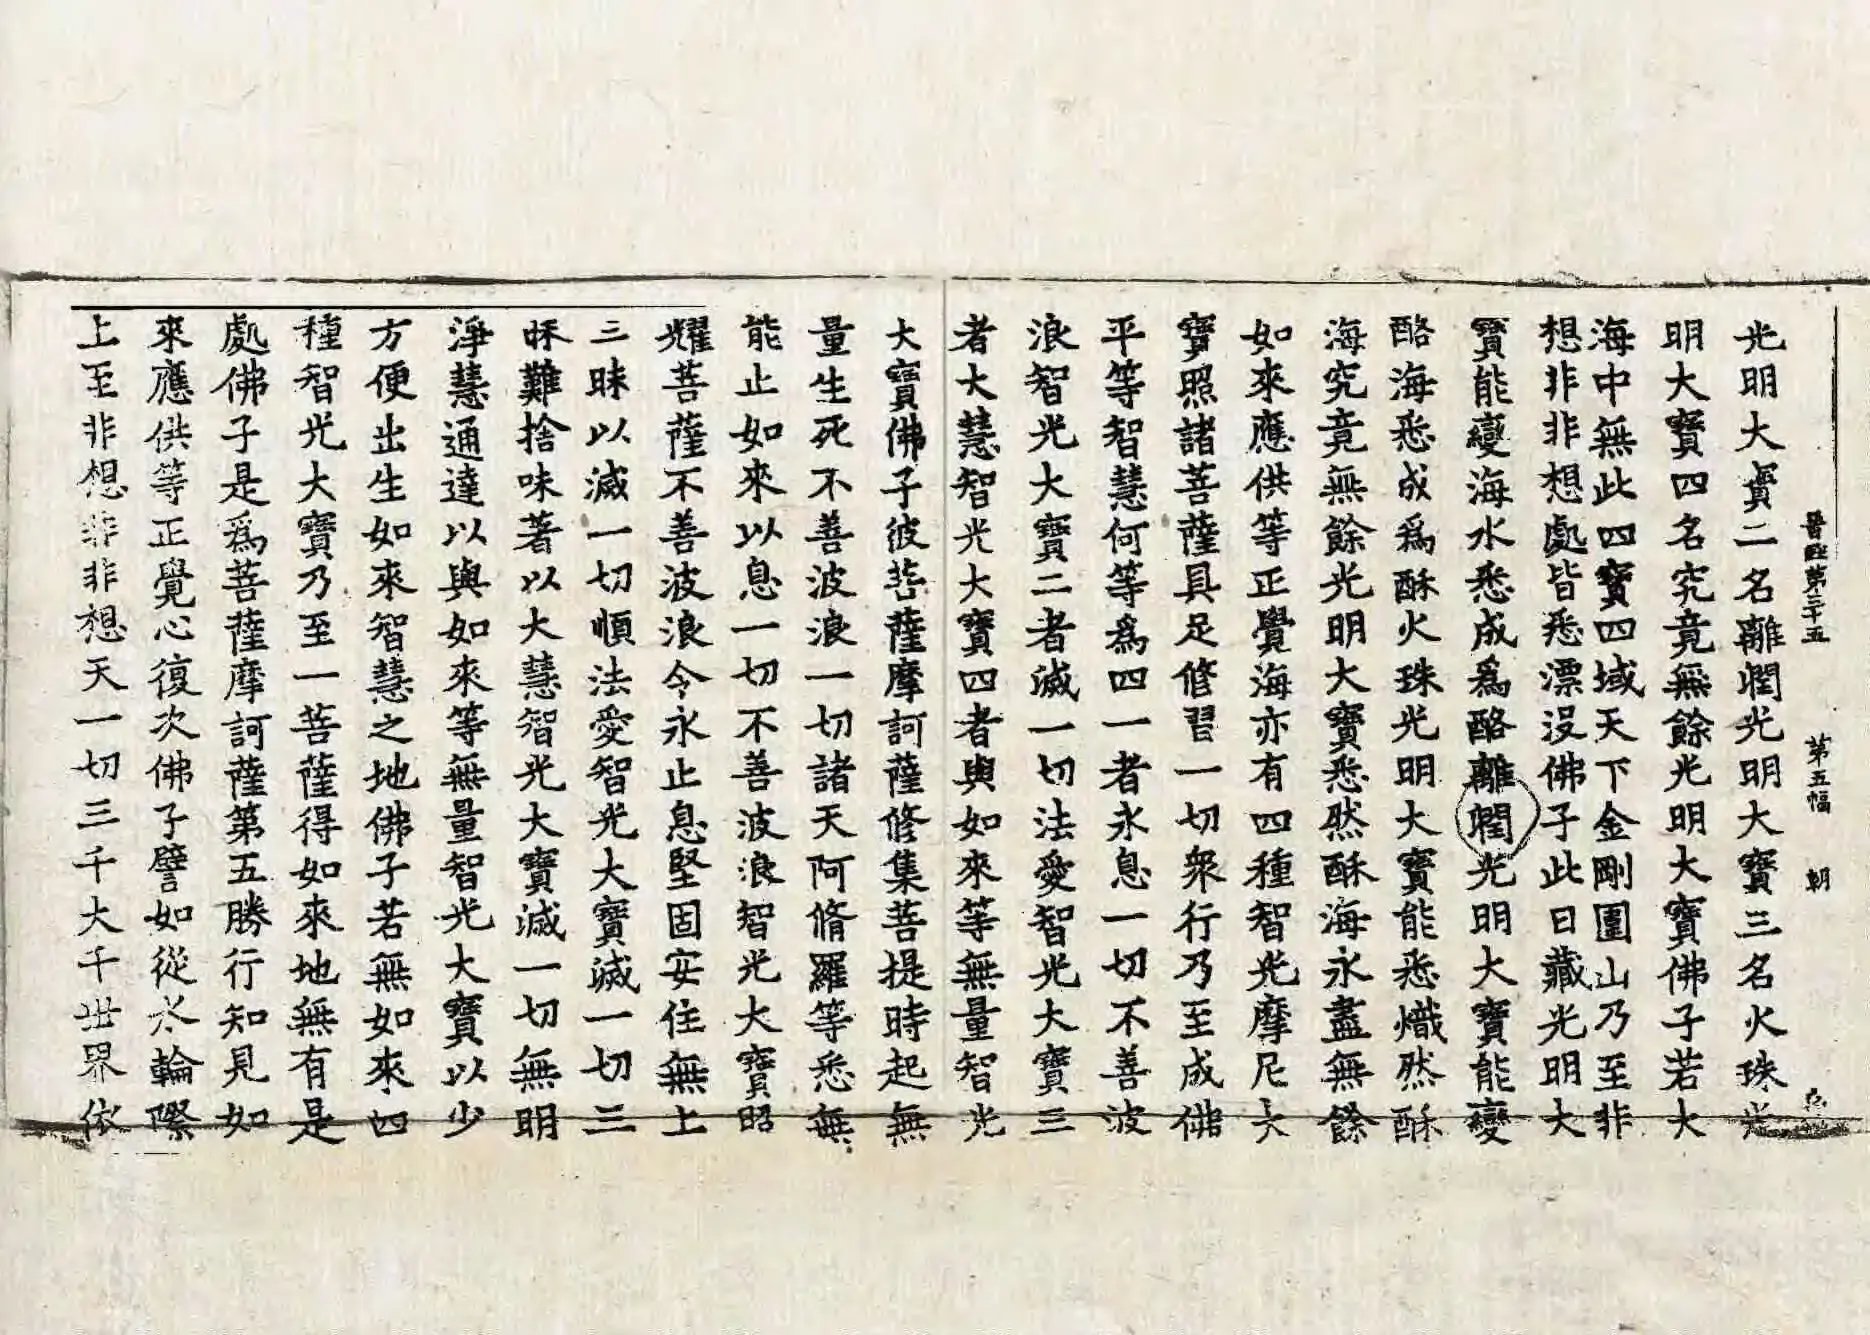 晉經第三十五　第五幅　朝
光明大寶二名離潤光明大寶三名火珠光
明大寶四名究竟無餘光明大寶佛子若大
海中無此四寶四域天下金剛圍山乃至非
想非非想處皆悉漂沒佛子此日藏光明大
寶能變海水悉成爲酪離潤光明大寶能變
酪海悉成爲酥火珠光明大寶能悉熾然酥
海究竟無餘光明大寶悉然酥海永盡無餘
如來應供等正覺海亦有四種智光摩尼大
寶照諸菩薩具足修習一切衆行乃至成佛
平等智慧何等爲四一者永息一切不善波
浪智光大寶二者滅一切法愛智光大寶三
者大慧智光大寶四者與如來等無量智光
大寶佛子彼菩薩摩訶薩修集菩提時起無
量生死不善波浪一切諸天阿脩羅等悉無
能止如來以息一切不善波浪智光大寶照
耀菩薩不善波浪令永止息堅固安住無上
三昧以滅一切順法愛智光大寶滅一切三
昧難捨味著以大慧智光大寶滅一切無明
淨慧通達以與如來等無量智光大寶以少
方便出生如來智慧之地佛子若無如來四
種智光大寶乃至一菩薩得如來地無有是
處佛子是爲菩薩摩訶薩第五勝行知見如
來應供等正覺心復次佛子譬如從水輪際
上至非想非非想天一切三千大千世界依